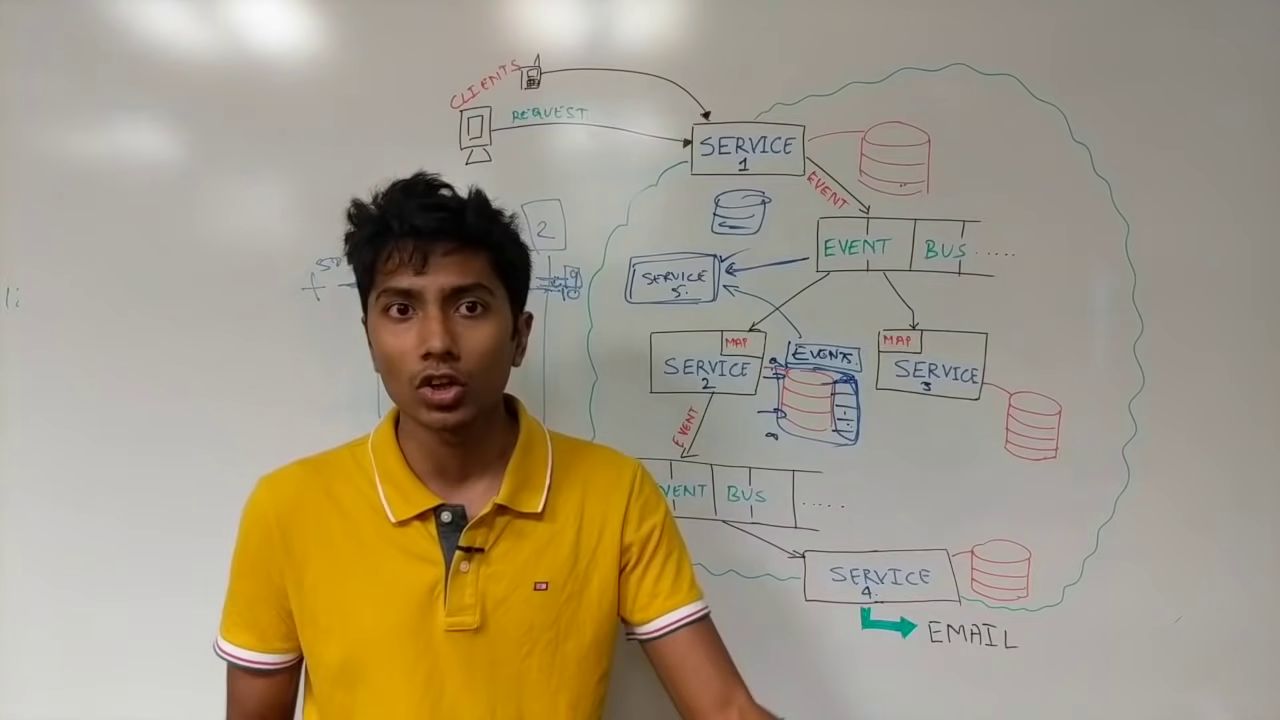 CLIENTS
REQUEST
SERVICE
1
EVENT
2
EVENT BUS ......
SERVICE
5.
MAP
SERVICE
2
EVENTS.
MAP
SERVICE
3
EVENT
VENT BUS .....
SERVICE
4.
EMAIL